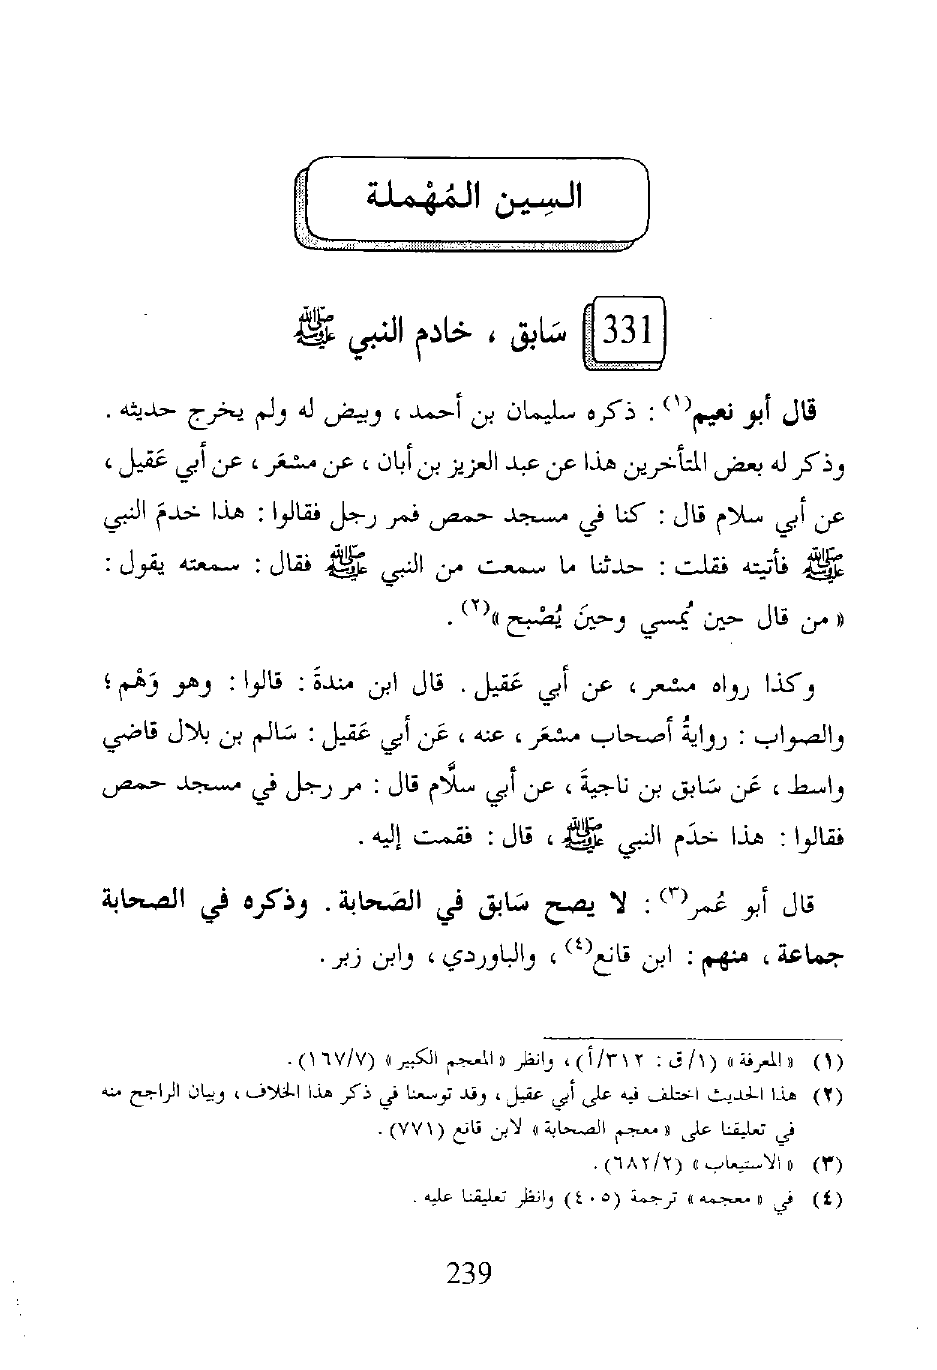 السِين المُهْملة
331 سَابق ، خادم النبي ﷺ
قال أبو نعيم(١) : ذكره سليمان بن أحمد ، وبيض له ولم يخرج حديثه .
وذكر له بعض المتأخرين هذا عن عبد العزيز بن أبان ، عن مسْعَر ، عن أبي عَقيل ،
عن أبي سلام قال : كنا في مسجد حمص فمر رجل فقالوا : هذا خدمَ النبي
ﷺ فأتيته فقلت : حدثنا ما سمعت من النبي ﷺ فقال : سمعته يقول :
« من قال حين يُمسي وحينَ يُصْبح »(٢) .
وكذا رواه مسْعر ، عن أبي عَقيل . قال ابن مندةَ : قالوا : وهو وَهْم ؛
والصواب : روايةُ أصحاب مسْعَر ، عنه ، عَن أبي عَقيل : سَالم بن بلال قاضي
واسط ، عَن سَابق بن ناجيةَ ، عن أبي سلَّام قال : مر رجل في مسجد حمص
فقالوا : هذا خدَم النبي ﷺ ، قال : فقمت إليه .
قال أبو عُمر(٣) : لا يصح سَابق في الصَحابة . وذكره في الصحابة
جماعة ، منهم : ابن قانع(٤) ، والباوردي ، وابن زبر .
(١) « المعرفة » (١/ ق : ٣١٢/أ) ، وانظر « المعجم الكبير » (١٦٧/٧) .
(٢) هذا الحديث اختلف فيه على أبي عقيل ، وقد توسعنا في ذكر هذا الخلاف ، وبيان الراجح منه
في تعليقنا على « معجم الصحابة » لابن قانع (٧٧١) .
(٣) « الاستيعاب » (٦٨٢/٢) .
(٤) في « معجمه » ترجمة (٤٠٥) وانظر تعليقنا عليه .
239